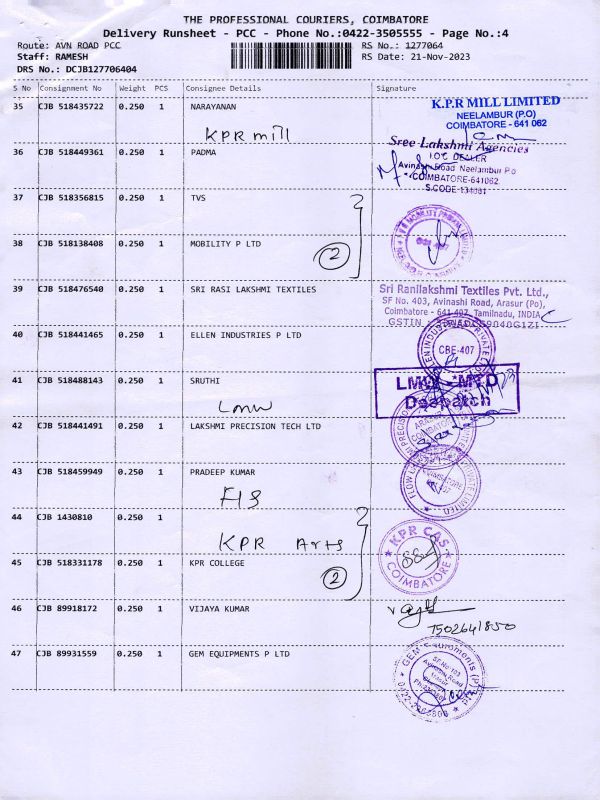 THE PROFESSIONAL COURIERS, COIMBATORE
Delivery Runsheet - PCC - Phone No.:0422-3505555 - Page No.:4
Route: AVN ROAD PCC
RS No.: 1277064
Staff: RAMESH
RS Date: 21-Nov-2023
DRS No.: DCJB127706404
S No Consignment No Weight PCS Consignee Details Signature
35 CJB 518435722 0.250 1 NARAYANAN
KPR mill
K.P.R MILL LIMITED
NEELAMBUR (P.O)
COIMBATORE - 641 062
36 CJB 518449361 0.250 1 PADMA
Sree Lakshmi Agencies
IOC DEALER
Avinashi Road Neelambur Po
COIMBATORE-641062
37 CJB 518356815 0.250 1 TVS
38 CJB 518138408 0.250 1 MOBILITY P LTD
2
39 CJB 518476540 0.250 1 SRI RASI LAKSHMI TEXTILES
Sri Ranilakshmi Textiles Pvt. Ltd.,
SF No. 403, Avinashi Road, Arasur (Po),
Coimbatore - 641 407, Tamilnadu, INDIA
GSTIN :
40 CJB 518441465 0.250 1 ELLEN INDUSTRIES P LTD
CBE-407
41 CJB 518488143 0.250 1 SRUTHI
LMW
LMW - MTD
Despatch
42 CJB 518441491 0.250 1 LAKSHMI PRECISION TECH LTD
ARASUR
COIMBATORE
43 CJB 518459949 0.250 1 PRADEEP KUMAR
FIS
44 CJB 1430810 0.250 1
KPR Arts
45 CJB 518331178 0.250 1 KPR COLLEGE
2
KPR CAS
COIMBATORE
46 CJB 89918172 0.250 1 VIJAYA KUMAR
7502641850
47 CJB 89931559 0.250 1 GEM EQUIPMENTS P LTD
SF No 103
Avinashi Road